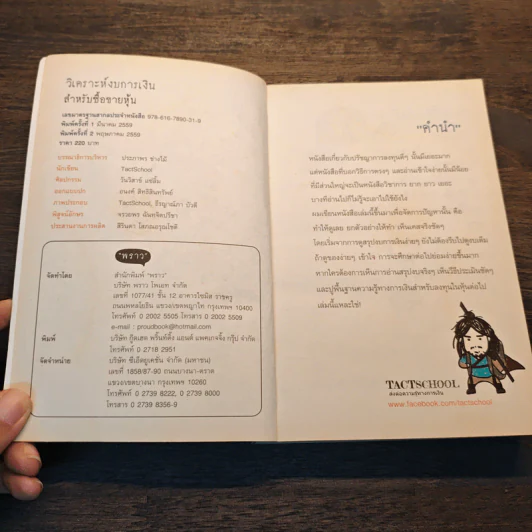 วิเคราะห์งบการเงิน
สำหรับซื้อขายหุ้น
เลขมาตรฐานสากลประจำหนังสือ 978-616-7890-31-9
พิมพ์ครั้งที่ 1 มีนาคม 2559
พิมพ์ครั้งที่ 2 พฤษภาคม 2559
ราคา 220 บาท
บรรณาธิการบริหาร ประภาพร ช่างไม้
นักเขียน TactSchool
ศิลปกรรม วันวิสาข์
ออกแบบปก อนงค์ สิทธิสินทรัพย์
ภาพประกอบ TactSchool, ธีรญาณ์ภา บัวดี
พิสูจน์อักษร
ประสานงานการผลิต สิรินดา โสภณอรุณโชติ
"พราว"
จัดทำโดย สำนักพิมพ์ "พราว"
บริษัท พราว โพเอท จำกัด
เลขที่ 1077/41 ชั้น 12 อาคารไซมิส ราชครู
ถนนพหลโยธิน แขวง/เขตพญาไท กรุงเทพฯ 10400
โทรศัพท์ 0 2002 5505 โทรสาร 0 2002 5509
e-mail : proudbook@hotmail.com
พิมพ์ บริษัท กู๊ดเฮด พริ้นท์ติ้ง แอนด์ แพคเกจจิ้ง กรุ๊ป จำกัด
โทรศัพท์ 0 2718 2951
จัดจำหน่าย บริษัท ซีเอ็ดยูเคชั่น จำกัด (มหาชน)
เลขที่ 1858/87-90 ถนนบางนา-ตราด
แขวง/เขตบางนา กรุงเทพฯ 10260
โทรศัพท์ 0 2739 8222, 0 2739 8000
โทรสาร 0 2739 8356-9
"คำนำ"
หนังสือเกี่ยวกับปรัชญาการลงทุนดีๆ นั้นมีเยอะมาก
แต่หนังสือที่บอกวิธีการตรงๆ และอ่านเข้าใจง่ายนั้นมีน้อย
ที่มีส่วนใหญ่จะเป็นหนังสือวิชาการ ยาก ยาว เยอะ
บางทีอ่านไปก็ไม่รู้จะเอาไปใช้ยังไง
ผมเขียนหนังสือเล่มนี้ขึ้นมาเพื่อจัดการปัญหานั้น คือ
ทำให้ดูเลย ยกตัวอย่างให้ทำ เห็นเคสจริงชัดๆ
โดยเริ่มจากการดูสรุปงบการเงินง่ายๆ ยังไม่ต้องรีบไปดูงบเต็ม
ถ้าดูของง่ายๆ เข้าใจ การจะศึกษาต่อไปย่อมง่ายขึ้นมาก
หากใครต้องการเห็นการอ่านสรุปงบจริงๆ เห็นวิธีประเมินชัดๆ
และปูพื้นฐานความรู้ทางการเงินสำหรับลงทุนในหุ้นต่อไป
เล่มนี้แหละใช่!
TACTSCHOOL
ส่งต่อความรู้ทางการเงิน
www.facebook.com/tactschool